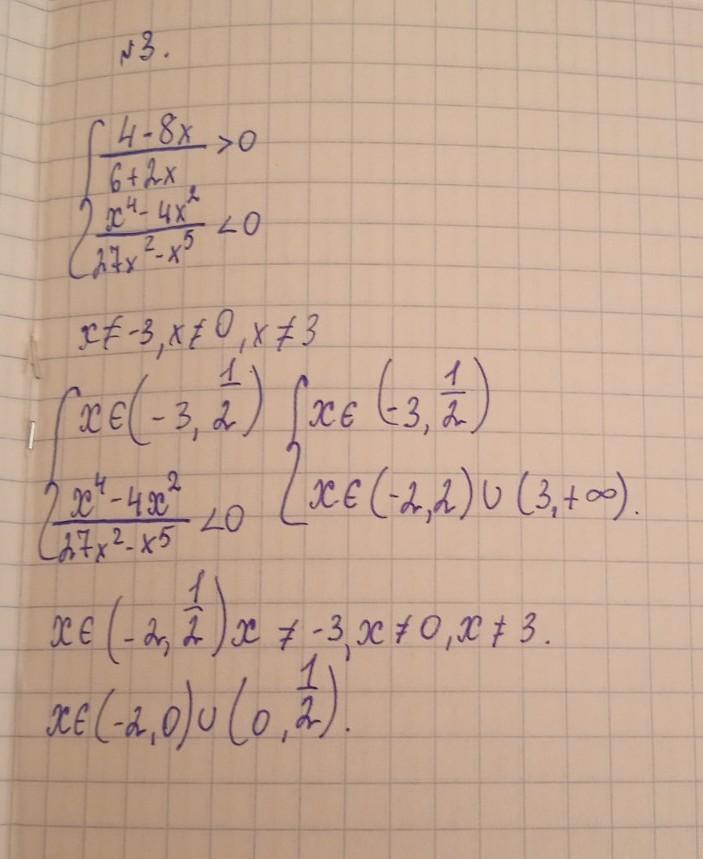 №3.
{ (4-8x)/(6+2x) > 0
{ (x⁴-4x²)/(27x²-x⁵) < 0
x≠-3, x≠0, x≠3
{ x∈(-3, 1/2) { x∈(-3, 1/2)
{ (x⁴-4x²)/(27x²-x⁵) < 0 { x∈(-2,2)∪(3,+∞).
x∈(-2, 1/2) x≠-3, x≠0, x≠3.
x∈(-2,0)∪(0, 1/2).